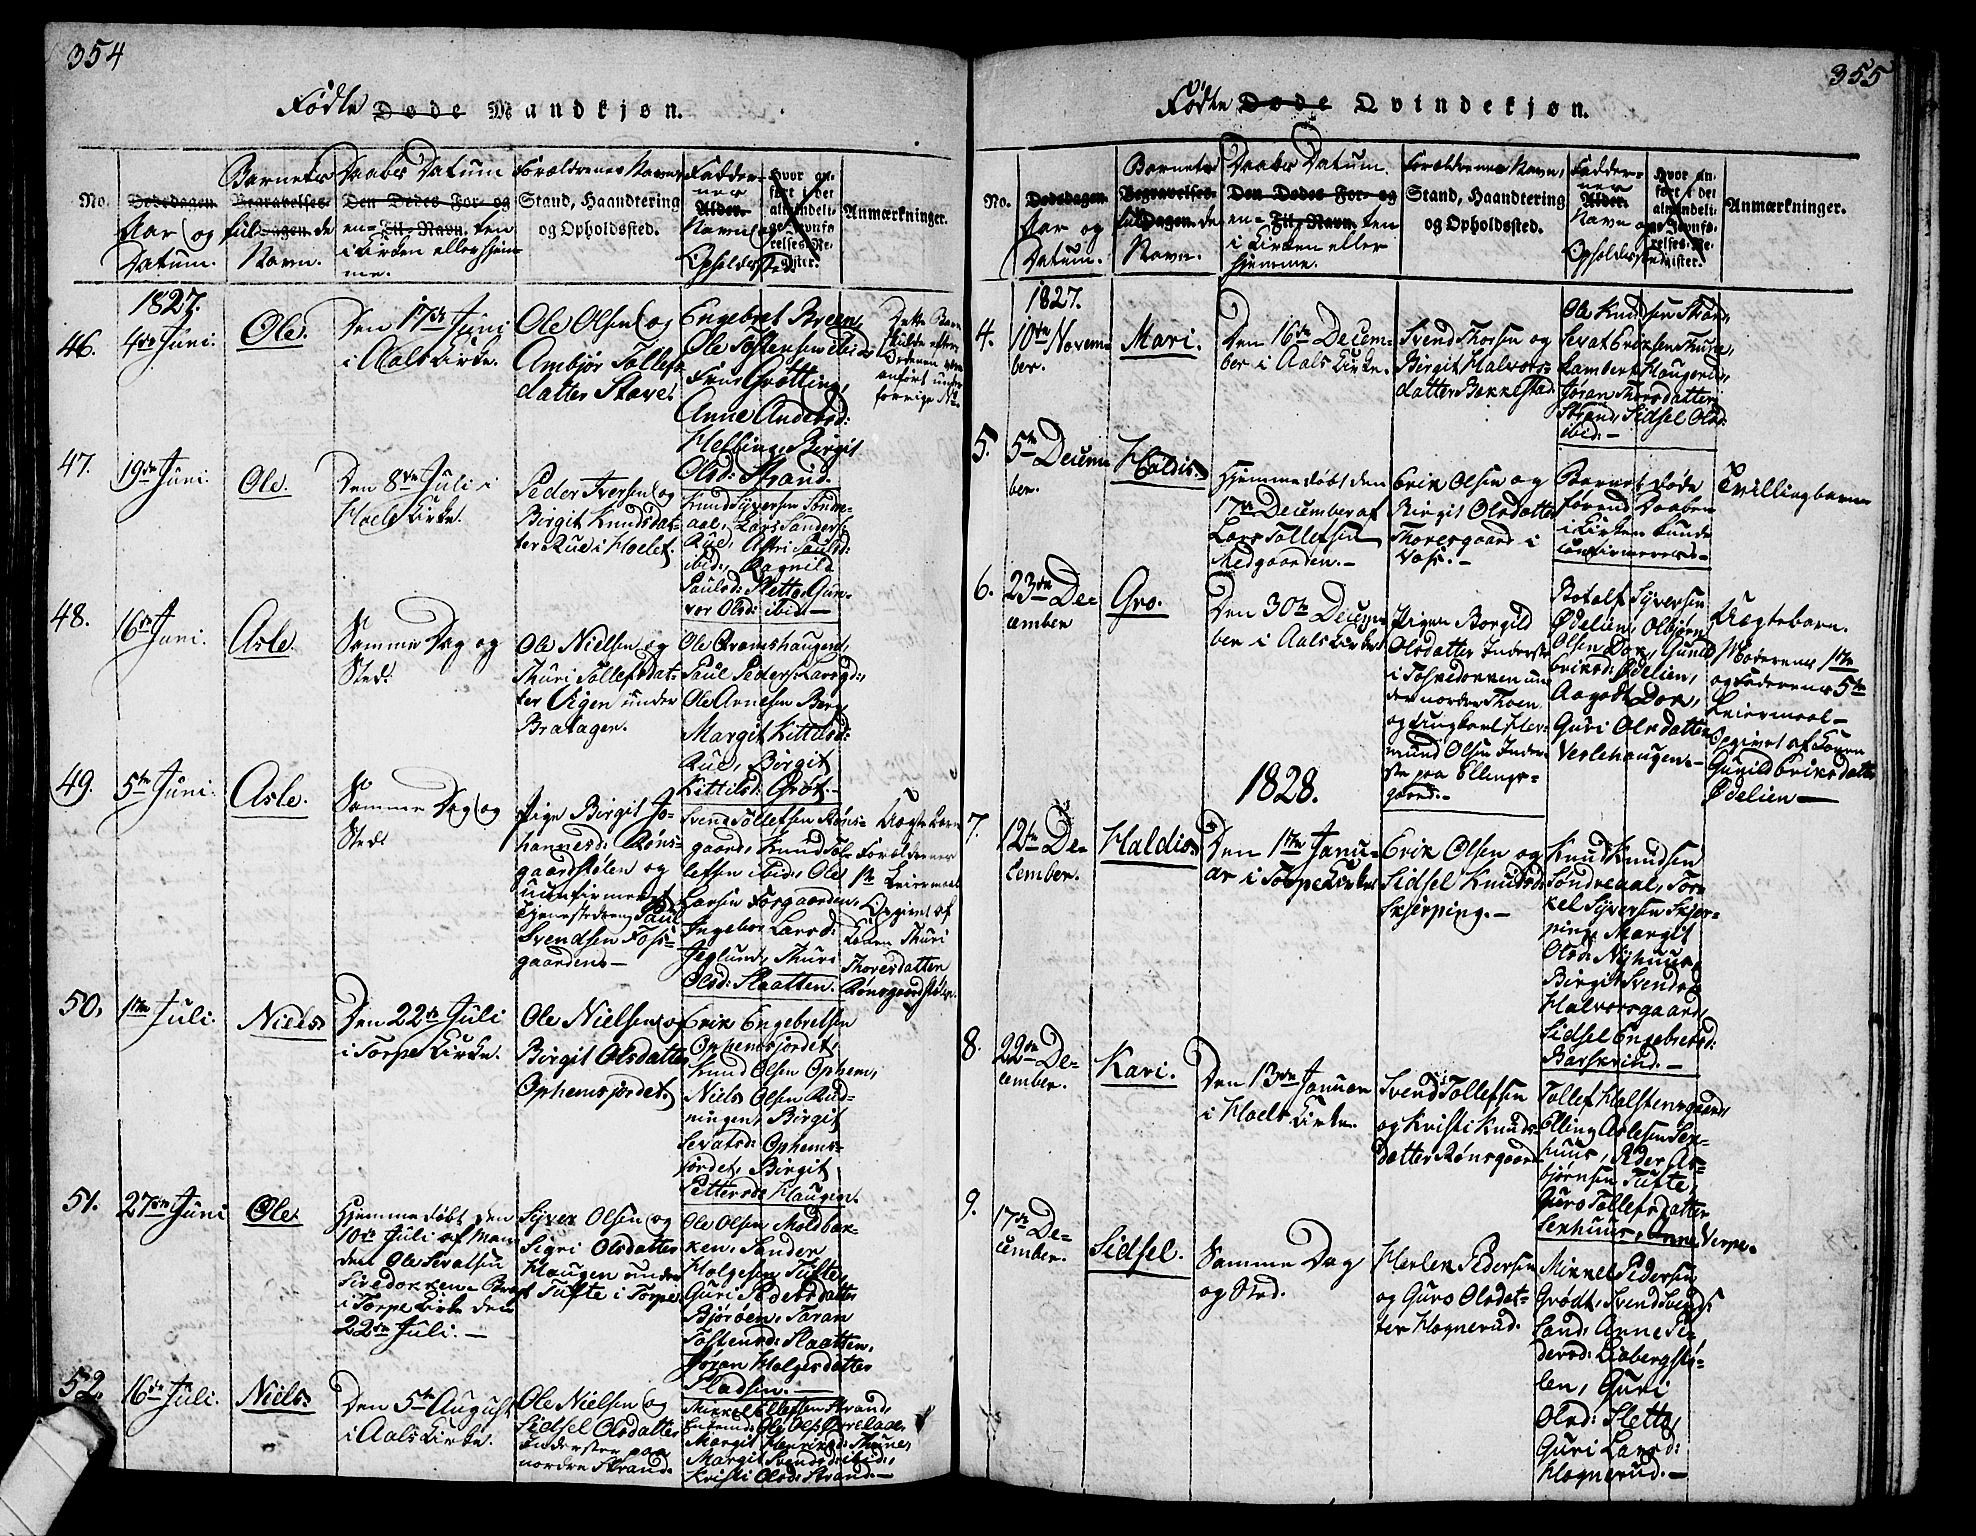 354
Fødte Døde Mandkjøn.
No.
Dødsdagen
Aar og
Datum.
Barnets
Begravelses-
fulDagen.de
Navn.
Daabs Datum
Den Dødes For- og
en- Til-Navn. ten
i Kirken eller hjem-
me.
Forældrenes Navn,
Stand, Haandtering
og Opholdssted.
Fadder-
nes
Alder.
Navn og
Opholdssted
Hvor an-
ført i det
almindeli-
ge Jevnfø-
relses-Re-
gister.
Anmærkninger.
1827.
46.
4de Juni.
Ole.
Den 17de Juni
i Aals Kirke.
Ole Olsen og
Ambjør Tollefs-
datter Stave.
Engebret Breen,
Ole Tostensen ibid.
Grøtting,
Anne Andersd:
Helling, Birgit
Olsd: Strand.
Dette Barn
skulde efter
Ordenen være
anført under
forrige No.
47.
19de Juni.
Ole.
Den 8de Juli i
Hoels Kirke.
Peder Iversen og
Birgit Knudsdat-
ter Rue i Hoelet.
Knud Syversen Sondre-
aal, Lars Sanders:
Rue, Astri Paulsd:
ibid, Ragnild
Paulsd: Sletto, Gun-
vor Olsd: ibid.—
48.
16de Juni.
Asle.
Samme Dag og
Sted.
Ole Nielsen og
Thuri Tollefsdat-
ter Vigen under
Bratagen.
Ole Bramshaugen,
Paul Peders: Larsgd:,
Ole Arnesen Berg,
Margit Kittilsd:
Rue, Birgit
Kittilsd: Grøt.
49.
5te Juni.
Asle.
Samme Dag og
Sted.
Pige Birgit Jo-
hannesd: Røns-
gaardstølen og
uconfirmeret
Tjenestedreng Paul
Svendsen Fos-
gaarden.—
Svend Tollefsen Røns-
gaard, Knud Tol-
lefsen ibid, Ole
Larsen Forgaarden,
Ingebor Larsd:
Jeglund, Thuri
Olsd: Slaatten.
Uægte barn
Forældrenes
1te Leiermaal
Opgivet af
Konen Thuri
Thoresdatter
Rønsgaardstølen.
50.
1te Juli.
Niels
Den 22de Juli
i Torpe Kirke.
Ole Nielsen og
Birgit Olsdatter
Ophemsjordet.
Erik Engebretsen
Ophemsjordet,
Knud Olsen Ophem,
Niels Olsen Rud-
ningen, Birgit
Sevatsd: Ophems-
jordet, Birgit
Pettersd: Haugen.
51.
27de Juni
Ole.
Hjemmedøbt den
10de Juli af Man-
den Ole Sevatsen
Siredokken— Bragt
i Torpe Kirke den
22de Juli.—
Syver Olsen og
Sigri Olsdatter
Haugen under
Tufte i Torpe
Ole Olsen Moldbak-
ken, Sander
Holgesen Tufte,
Guri Pedersdatter
Bjørøen, Taran
Tostensd: Slaatten,
Jøran Holgesdatter
Pladsen.—
52.
16de Juli.
Niels
Den 5te August
i Aals Kirke.
Ole Nielsen og
Sidsel Olsdatter
Inderster paa
nordre Strand.
Mikkel Ellefsen Strand,
Margit Henriksd: Thune,
Margit Svendsd: ibid,
Kristi Olsd: Strand.—
355
Fødte Døde Qvindekjøn.
No.
Dødsdagen
Aar og
Datum.
Barnets
Begravelses-
fulDagen.de
Navn.
Daabs Datum.
Den Dødes For- og
en- Til-Navn. ten
i Kirken eller
hjemme.
Forældrenes Navn,
Stand, Haandtering
og Opholdssted.
Fadder-
nes
Alder.
Navn og
Opholdssted
Hvor an-
ført i det
almindeli-
ge Jevnfø-
relses-Re-
gister.
Anmærkninger.
1827.
4.
10de Novem-
ber.
Mari.
Den 16de Decem-
ber i Aals Kirke.
Svend Thorsen og
Birgit Halvors-
datter Bakkestad
Ole Knudsen Strand,
Sevat Eriksen Thune,
Lambert Haugerud,
Jøran Thorsdatter
Strand, Sidsel Olsd:
ibid.—
5.
5te Decem-
ber.
Haldis
Hjemmedøbt den
17de December af
Lars Tollefsen
Medgaarden.—
Erik Olsen og
Birgit Olsdatter
Thoresgaard i
Vats.—
Barnet døde
førend Daaben
i Kirken kunde
confirmeres.—
Tvillingbarn
6.
23de De-
cember
Gro.
Den 30te Decem-
ber i Aals Kirke.
Pigen Borgild
Olsdatter Inderst
i Toskedokken un-
der nordre Thoen
og Ungkarl Her-
mund Olsen Inder-
ste paa Ellings-
gaard.—
Botolf Syversen
Ødelien, Olbjørn
Olsen Dok, Gunild
Eriksd: Ødelien,
Aagodt Dok,
Guri Olsdatter
Veslehaugen.—
Uægtebarn.
Moderens 1te
og Faderens 5te
Leiermaal—
Opgivet af Konen
Gunild Eriksdatter
Ødelien—
1828.
7.
12te De-
cember.
Haldis
Den 1te Janu-
ar i Torpe Kirke
Erik Olsen og
Sidsel Knudsd:
Skjerping.—
Knud Knudsen
Søndreaal, Tor-
kel Syversen Skjer-
ping, Margit
Olsd: Nyhuus,
Birgit Svendsd:
Halvorsgaard,
Sidsel Engebretsd:
Barskrind.—
8.
22de De-
cember.
Kari.
Den 13de Januar
i Hoels Kirke.
Svend Tollefsen
og Kristi Knuds-
datter Rønsgaard
Tollef Halstensgaard,
Elling Aslesen Sex-
huus, Peder As-
bjørnsen Tufte,
Guro Tollefsdatter
Sexhuus, Anne Verpe.
9.
17de De-
cember.
Sidsel.
Samme Dag
og Sted.
Herlek Pedersen
og Guro Olsdat-
ter Hognerud.
Mikkel Pedersen
Grødt, Svend Svends:
Sand, Anne Pe-
dersd: Liabergstø-
len, Guri
Olsd: Sletto,
Guri Larsd:
Hognerud.—